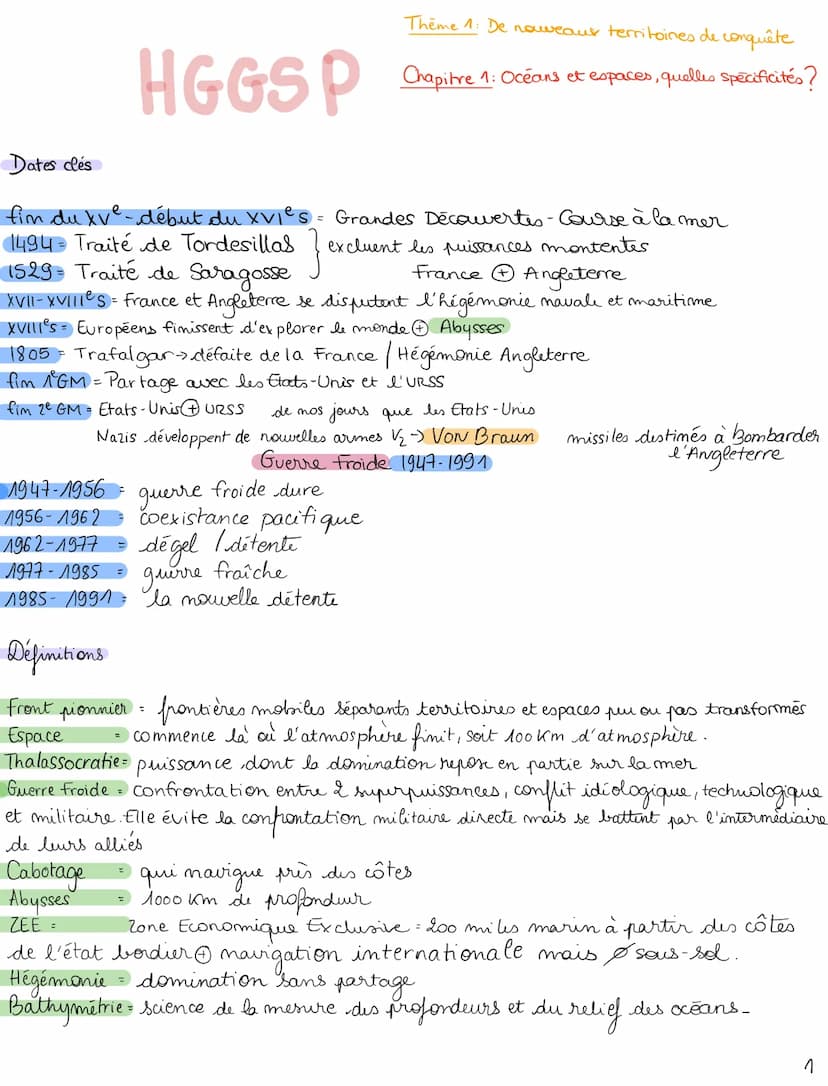 Thème 1: De nouveaux territoires de conquête
HGGSP
Chapitre 1: Océans et espaces, quelles spécificités?
Dates clés
fin du XVe - début du XVIe s = Grandes Découvertes - Course à la mer
1494 = Traité de Tordesillas } excluent les puissances montentes
1529 = Traité de Saragosse France ⊕ Angleterre
XVII-XVIIIe s = France et Angleterre se disputent l'hégémonie navale et maritime
XVIIIe s = Européens finissent d'explorer le monde ⊕ Abysses
1805 = Trafalgar → défaite de la France / Hégémonie Angleterre
fin 1e GM = Partage avec les Etats-Unis et l'URSS
fin 2e GM = Etats-Unis ⊕ URSS de nos jours que les Etats-Unis
Nazis développent de nouvelles armes V2 → VON Braun missiles destinés à Bombarder
l'Angleterre
Guerre froide 1947-1991
1947-1956 = guerre froide dure
1956-1962 = coexistance pacifique
1962-1977 = dégel / détente
1977-1985 = guerre fraîche
1985-1991 = la nouvelle détente
Définitions
Front pionnier = frontières mobiles séparants territoires et espaces peu ou pas transformés
Espace = commence là où l'atmosphère finit, soit 100 km d'atmosphère.
Thalassocratie = puissance dont la domination repose en partie sur la mer
Guerre froide = confrontation entre 2 superpuissances, conflit idéologique, technologique
et militaire. Elle évite la confrontation militaire directe mais se battent par l'intermédiaire
de leurs alliés
Cabotage = qui navigue près des côtes
Abysses = 1000 km de profondeur
ZEE = Zone Economique Exclusive = 200 miles marin à partir des côtes
de l'état bordier ⊕ navigation internationale mais ∅ sous-sol.
Hégémonie = domination sans partage
Bathymétrie = science de la mesure des profondeurs et du relief des océans_
1